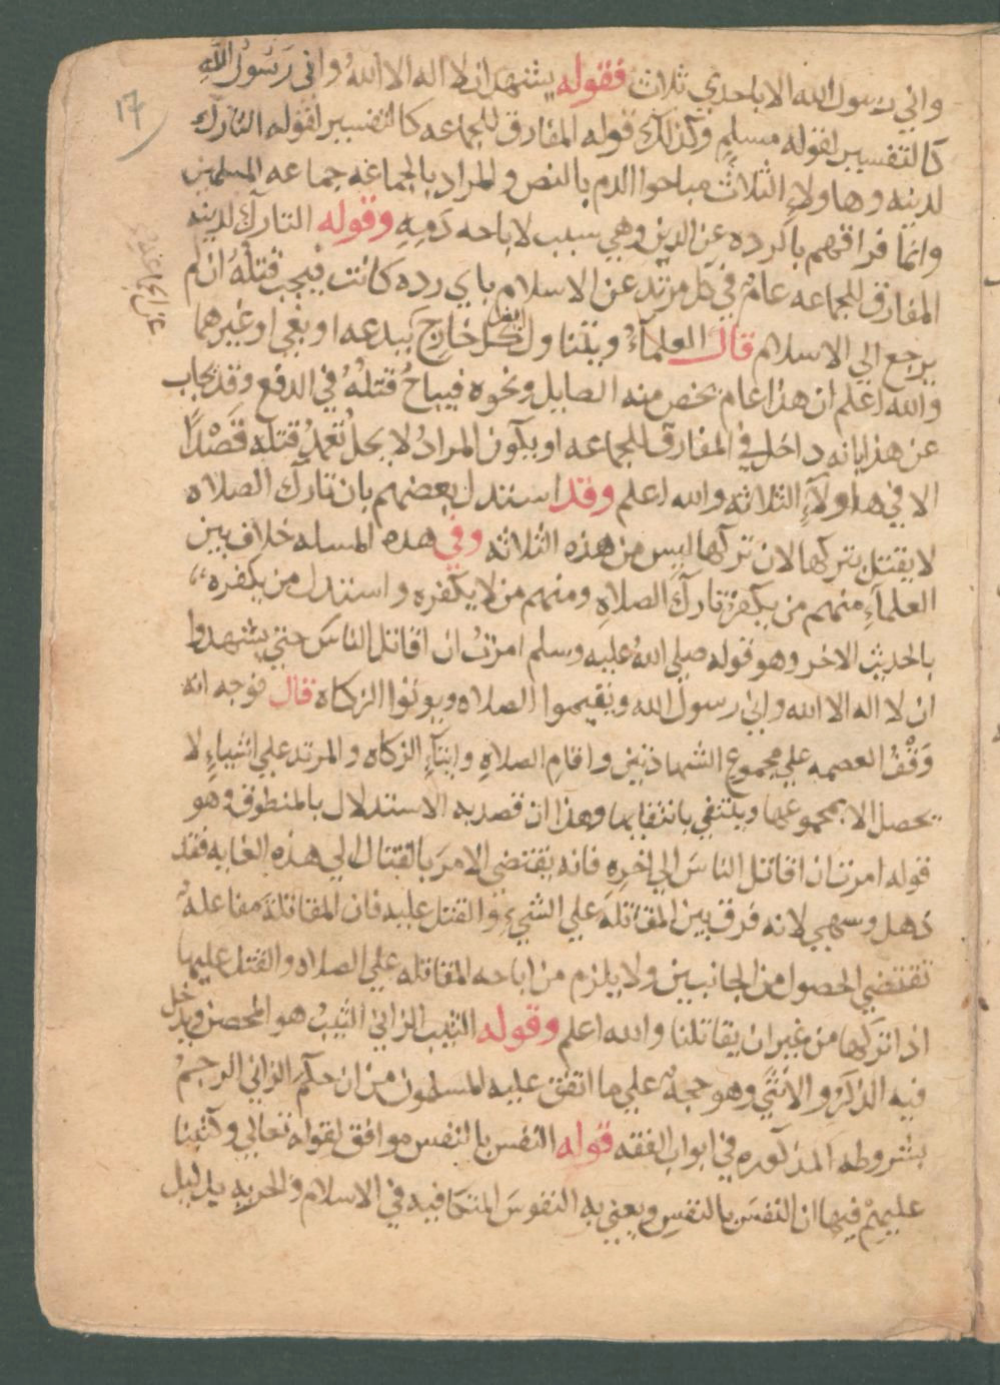 17
واني رسول الله الا باحدي ثلاث فقوله يشهد ان لا اله الا الله واني رسول الله
كالتفسير لقوله مسلم وكذلك قوله المفارق للجماعه كالتفسير لقوله التارك
لدينه وهاولاء الثلاث مباحوا الدم بالنص والمراد بالجماعه جماعه المسلمين
وانما فراقهم بالرده عن الدين وهي سبب لاباحه دمه وقوله التارك لدينه
المفارق للجماعه عام في كل مرتد عن الاسلام باي رده كانت فيجب قتله ان لم
يرجع الي الاسلام قال العلماء ويتناول ايضا كل خارج ببدعه او بغي او غيرهما
والله اعلم ان هذا عام يخص منه الصايل ونحوه فيباح قتله في الدفع وقد يجاب
عن هذا بانه داخل في المفارق للجماعه او يكون المراد لا يحل تعمد قتله قصدا
الا في هاولاء الثلاثه والله اعلم وقد استدل بعضهم بان تارك الصلاه
لا يقتل بتركها لان تركها ليس من هذه الثلاثه وفي هذه المسله خلاف بين
العلماء منهم من يكفر تارك الصلاه ومنهم من لا يكفره واستدل من يكفره
بالحديث الاخر وهو قوله صلي الله عليه وسلم امرت ان اقاتل الناس حتي يشهدوا
ان لا اله الا الله واني رسول الله ويقيموا الصلاه ويوتوا الزكاه قال فوجه انه
وقف العصمه علي مجموع الشهادتين واقام الصلاه وايتاء الزكاه والمرتد علي اشياء لا
يحصل الا بمجموعها وينتفي بانتفايها وهذا ان قصد به الاستدلال بالمنطوق وهو
قوله امرت ان اقاتل الناس الي اخره فانه يقتضي الامر بالقتال الي هذه الغايه فقد
ذهل وسهي لانه فرق بين المقاتله علي الشيء والقتل عليه فان المقاتله مفاعله
تقتضي الحصول من الجانبين ولا يلزم من اباحه المقاتله علي الصلاه والقتل عليها
اذا تركها من غير ان يقاتلنا والله اعلم وقوله الثيب الزاني الثيب هو المحصن ويدخل
فيه الذكر والانثي وهو حجة علي ما اتفق عليه المسلمون من ان حكم الزاني الرجم
بشروطه المذكوره في ابواب الفقه قوله النفس بالنفس موافق لقوله تعالي وكتبنا
عليهم فيها ان النفس بالنفس ويعني به النفوس المتكافيه في الاسلام والحريه بدليل